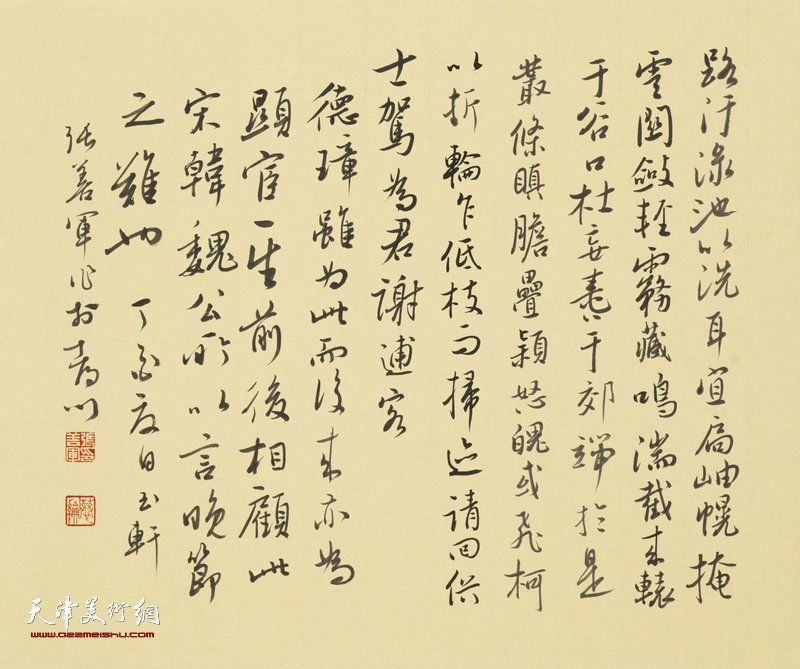 路汙渌池以洗耳宜扃岫幌掩
雲關斂輕霧藏鳴湍截來轅
于谷口杜妄轡于郊端於是
叢條瞋膽疊穎怒魄或飛柯
以折輪乍低枝而掃迹請回俗
士駕為君謝逋客
德璋雖為此而後來亦為
顯官一生前後相顧此
宋韓魏公所以言晚節
之難也 丁酉 日 軒
張善軍作於
張善軍
天津美術網
www.022meishu.com